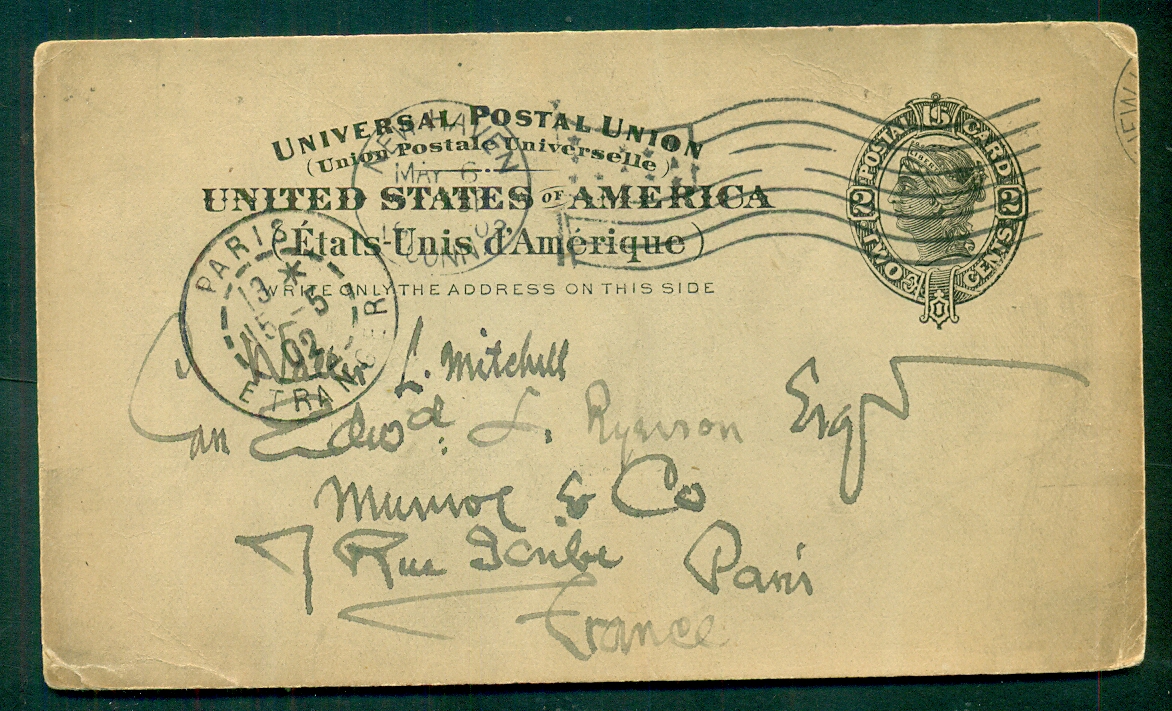 UNIVERSAL POSTAL UNION
(Union Postale Universelle)
UNITED STATES OF AMERICA
(États-Unis d'Amérique)
WRITE ONLY THE ADDRESS ON THIS SIDE
NEW HAVEN
MAY 6
CONN 02
U.S. POSTAL CARD
2 2
TWO CENTS
LIBERTY
NEW
PARIS
13 *
15 - 5
02
ETRANGER
L. Mitchell
Edwd. L. Ryerson Esq
Munroe & Co
7 Rue Scribe Paris
France